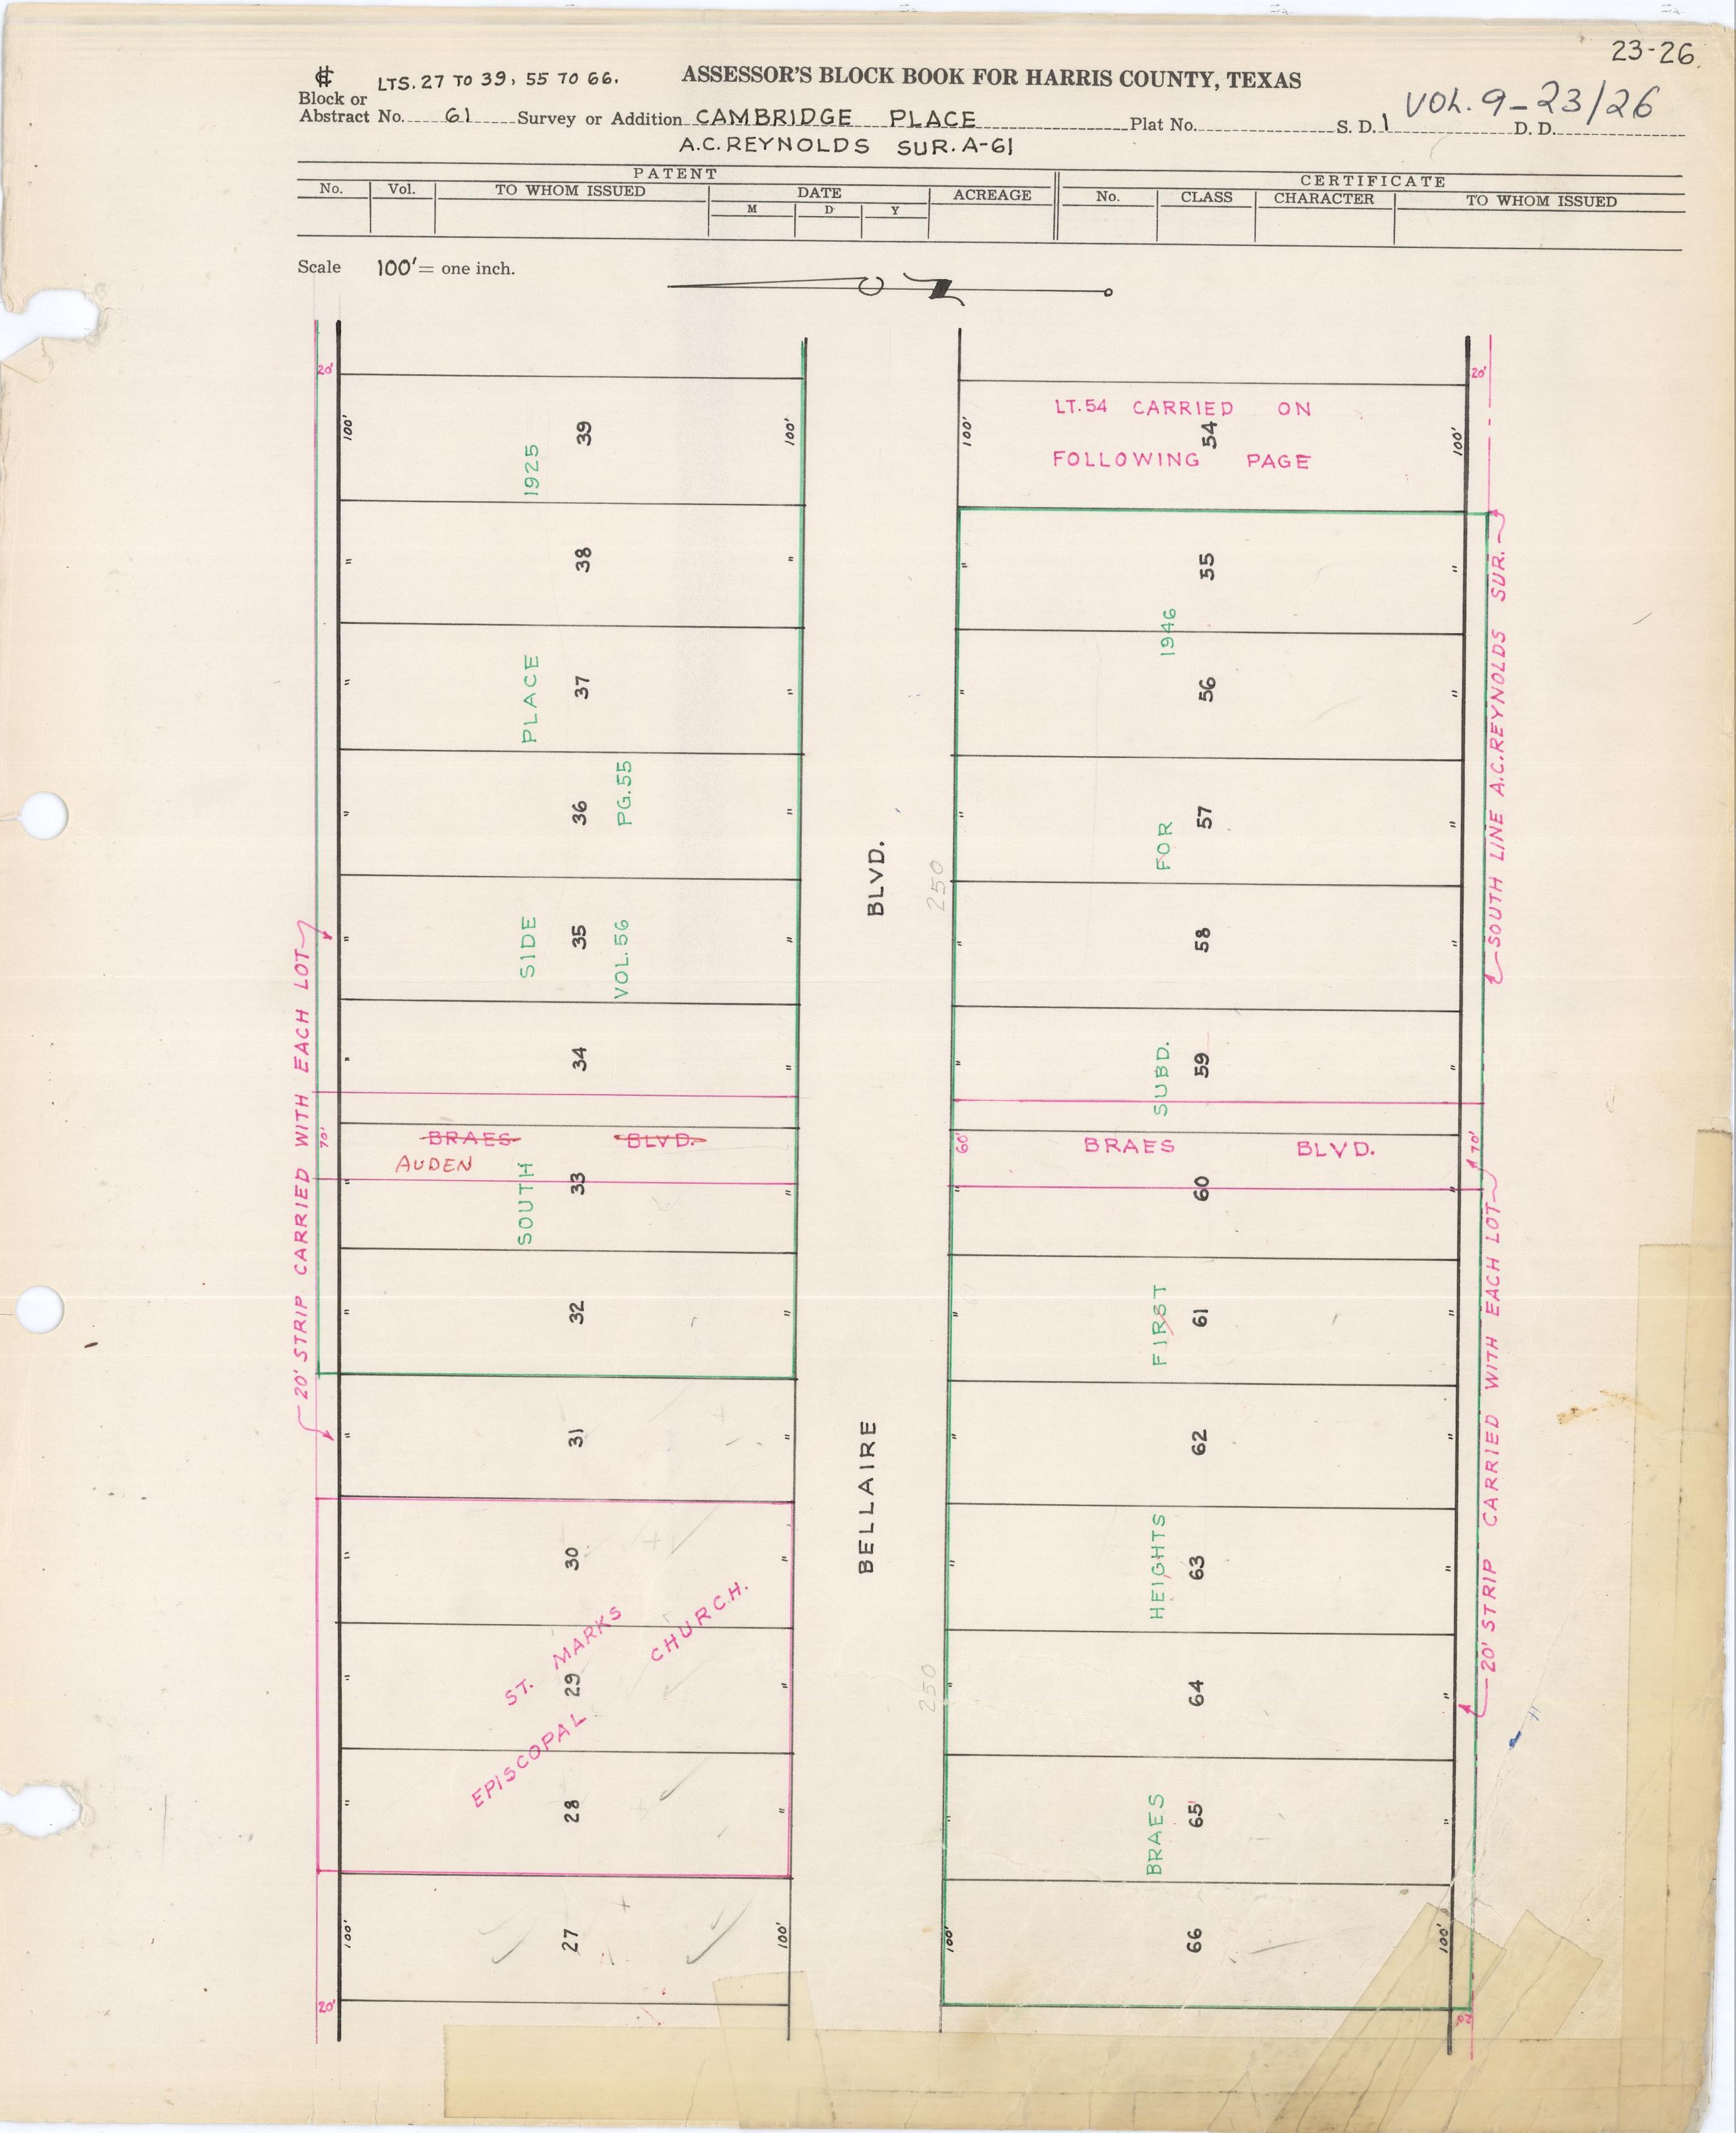 23-26.
₵ LTS. 27 TO 39, 55 TO 66. ASSESSOR'S BLOCK BOOK FOR HARRIS COUNTY, TEXAS
Block or
Abstract No. 61 Survey or Addition CAMBRIDGE PLACE Plat No. S. D. 1 VOL. 9-23/26 D. D.
A.C. REYNOLDS SUR. A-61
PATENT CERTIFICATE
No. Vol. TO WHOM ISSUED DATE ACREAGE No. CLASS CHARACTER TO WHOM ISSUED
M D Y
Scale 100' = one inch.
20'
100' 39 100'
" 38 "
" 37 "
" 36 "
" 35 "
" 34 "
70' BRAES BLVD.
AUDEN
" 33 "
" 32 "
" 31 "
" 30 "
" 29 "
" 28 "
100' 27 100'
20'
SOUTH SIDE PLACE 1925
VOL. 56 PG. 55
20' STRIP CARRIED WITH EACH LOT
ST. MARKS
EPISCOPAL CHURCH.
BELLAIRE BLVD.
250
250
20'
LT. 54 CARRIED ON
100' 54 100'
FOLLOWING PAGE
" 55 "
" 56 "
" 57 "
" 58 "
" 59 "
60' BRAES BLVD. 70'
" 60 "
" 61 "
" 62 "
" 63 "
" 64 "
" 65 "
100' 66 100'
20'
BRAES HEIGHTS FIRST SUBD. FOR 1946
SOUTH LINE A.C. REYNOLDS SUR.
20' STRIP CARRIED WITH EACH LOT